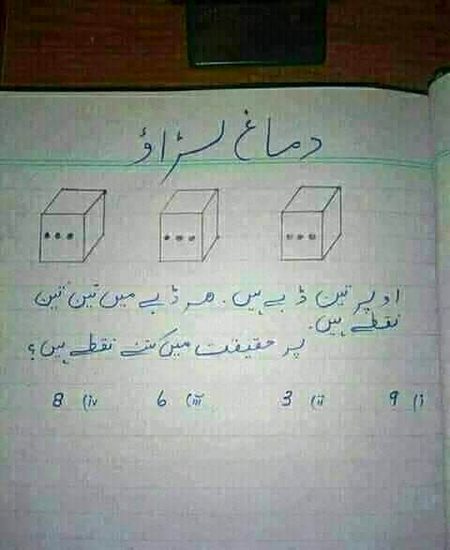 دماغ لڑاؤ
اوپر تین ڈبے ہیں. ہر ڈبے میں تین تین
نقطے ہیں.
پر حقیقت میں کتنے نقطے ہیں؟
i) 9 ii) 3 iii) 6 iv) 8